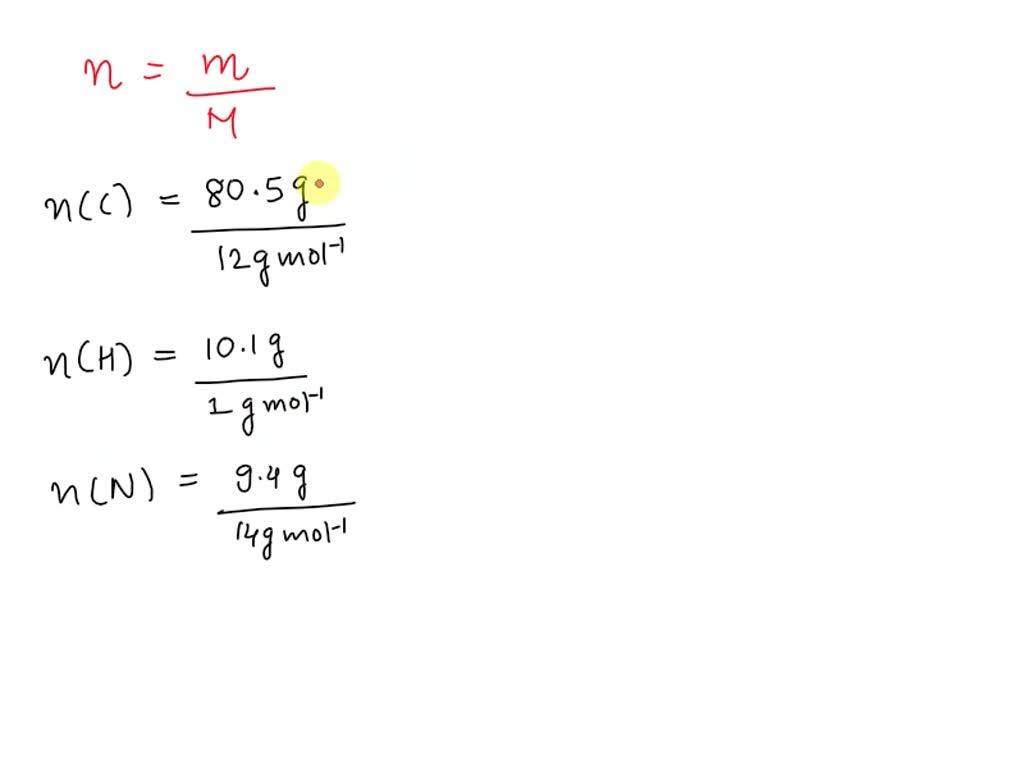 n = m
M
n(C) = 80.5 g
12 g mol⁻¹
n(H) = 10.1 g
1 g mol⁻¹
n(N) = 9.4 g
14 g mol⁻¹